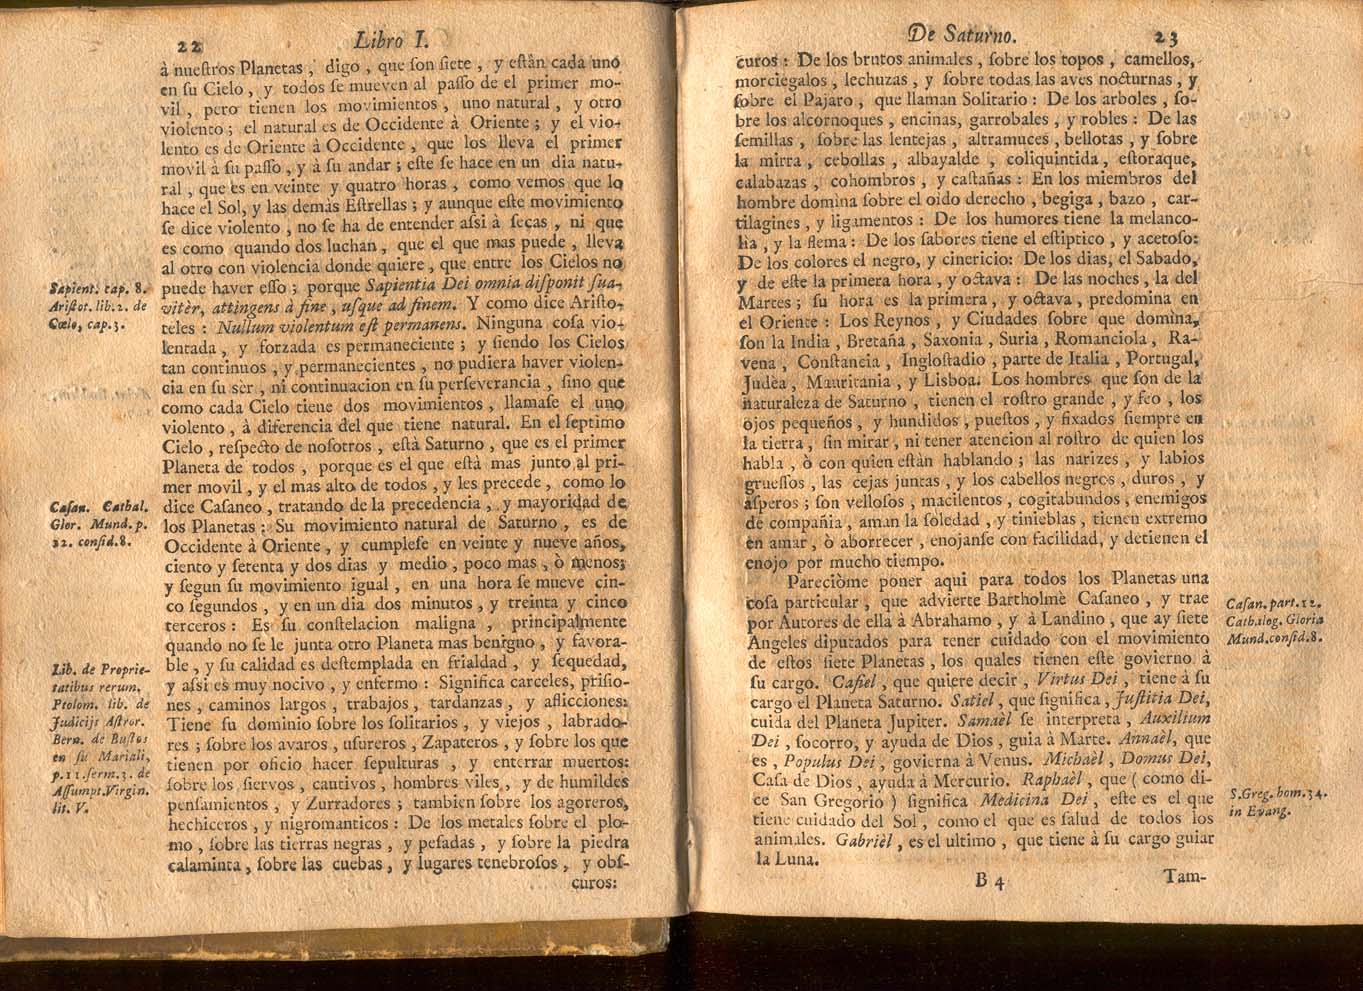 22 Libro I.
à nueſtros Planetas, digo, que ſon ſiete, y eſtàn cada uno
en ſu Cielo, y todos ſe mueven al paſſo de el primer mo-
vil, pero tienen los movimientos, uno natural, y otro
violento; el natural es de Occidente à Oriente; y el vio-
lento es de Oriente à Occidente, que los lleva el primer
movil à ſu paſſo, y à ſu andar; eſte ſe hace en un dia natu-
ral, que es en veinte y quatro horas, como vemos que lo
hace el Sol, y las demàs Eſtrellas; y aunque eſte movimiento
ſe dice violento, no ſe ha de entender aſsi à ſecas, ni que
es como quando dos luchan, que el que mas puede, lleva
al otro con violencia donde quiere, que entre los Cielos no
puede haver eſſo; porque Sapientia Dei omnia diſponit ſua-
vitèr, attingens à fine, uſque ad finem. Y como dice Ariſto-
teles: Nullum violentum eſt permanens. Ninguna coſa vio-
lentada, y forzada es permaneciente; y ſiendo los Cielos
tan continuos, y permanecientes, no pudiera haver violen-
cia en ſu sèr, ni continuacion en ſu perſeverancia, ſino que
como cada Cielo tiene dos movimientos, llamaſe el uno
violento, à diferencia del que tiene natural. En el ſeptimo
Cielo, reſpecto de noſotros, eſtà Saturno, que es el primer
Planeta de todos, porque es el que eſtà mas junto al pri-
mer movil, y el mas alto de todos, y les precede, como lo
dice Caſaneo, tratando de la precedencia, y mayoridad de
los Planetas: Su movimiento natural de Saturno, es de
Occidente à Oriente, y cumpleſe en veinte y nueve años,
ciento y ſetenta y dos dias y medio, poco mas, ò menos;
y ſegun ſu movimiento igual, en una hora ſe mueve cin-
co ſegundos, y en un dia dos minutos, y treinta y cinco
terceros: Es ſu conſtelacion maligna, principalmente
quando no ſe le junta otro Planeta mas benigno, y favora-
ble, y ſu calidad es deſtemplada en frialdad, y ſequedad,
y aſsi es muy nocivo, y enfermo: Significa carceles, priſio-
nes, caminos largos, trabajos, tardanzas, y aflicciones:
Tiene ſu dominio ſobre los ſolitarios, y viejos, labrado-
res; ſobre los avaros, uſureros, Zapateros, y ſobre los que
tienen por oficio hacer ſepulturas, y enterrar muertos:
ſobre los ſiervos, cautivos, hombres viles, y de humildes
penſamientos, y Zurradores; tambien ſobre los agoreros,
hechiceros, y nigromanticos: De los metales ſobre el plo-
mo, ſobre las tierras negras, y peſadas, y ſobre la piedra
calaminta, ſobre las cuebas, y lugares tenebroſos, y obſ-
curos:
Sapient. cap. 8.
Ariſtot. lib. 2. de
Cœlo, cap. 3.
Caſan. Cathal.
Glor. Mund. p.
12. conſid. 8.
Lib. de Proprie-
tatibus rerum.
Ptolom. lib. de
Judicijs Aſtror.
Bern. de Buſtos
en ſu Mariali,
p. 11. ſerm. 3. de
Aſſumpt. Virgin.
lit. V.
De Saturno. 23
curos: De los brutos animales, ſobre los topos, camellos,
morciegalos, lechuzas, y ſobre todas las aves nocturnas, y
ſobre el Pajaro, que llaman Solitario: De los arboles, ſo-
bre los alcornoques, encinas, garrobales, y robles: De las
ſemillas, ſobre las lentejas, altramuces, bellotas, y ſobre
la mirra, cebollas, albayalde, coliquintida, eſtoraque,
calabazas, cohombros, y caſtañas: En los miembros del
hombre domina ſobre el oido derecho, begiga, bazo, car-
tilagines, y ligamentos: De los humores tiene la melanco-
lia, y la flema: De los ſabores tiene el eſtiptico, y acetoſo:
De los colores el negro, y cinericio: De los dias, el Sabado,
y de eſte la primera hora, y octava: De las noches, la del
Martes; ſu hora es la primera, y octava, predomina en
el Oriente: Los Reynos, y Ciudades ſobre que domina,
ſon la India, Bretaña, Saxonia, Suria, Romanciola, Ra-
vena, Conſtancia, Ingloſtadio, parte de Italia, Portugal,
Judèa, Mauritania, y Lisboa. Los hombres que ſon de la
naturaleza de Saturno, tienen el roſtro grande, y feo, los
ojos pequeños, y hundidos, pueſtos, y fixados ſiempre en
la tierra, ſin mirar, ni tener atencion al roſtro de quien los
habla, ò con quien eſtàn hablando; las narizes, y labios
grueſſos, las cejas juntas, y los cabellos negros, duros, y
aſperos; ſon velloſos, macilentos, cogitabundos, enemigos
de compañia, aman la ſoledad, y tinieblas, tienen extremo
en amar, ò aborrecer, enojanſe con facilidad, y detienen el
enojo por mucho tiempo.
Pareciòme poner aqui para todos los Planetas una
coſa particular, que advierte Bartholmè Caſaneo, y trae
por Autores de ella à Abrahamo, y à Landino, que ay ſiete
Angeles diputados para tener cuidado con el movimiento
de eſtos ſiete Planetas, los quales tienen eſte govierno à
ſu cargo. Caſiel, que quiere decir, Virtus Dei, tiene à ſu
cargo el Planeta Saturno. Satiel, que ſignifica, Juſtitia Dei,
cuida del Planeta Jupiter. Samaèl ſe interpreta, Auxilium
Dei, ſocorro, y ayuda de Dios, guia à Marte. Annaèl, que
es, Populus Dei, govierna à Venus. Michaèl, Domus Dei,
Caſa de Dios, ayuda à Mercurio. Raphaèl, que (como di-
ce San Gregorio) ſignifica Medicina Dei, eſte es el que
tiene cuidado del Sol, como el que es ſalud de todos los
animales. Gabrièl, es el ultimo, que tiene à ſu cargo guiar
la Luna.
B 4 Tam-
Caſan. part. 12.
Cathalog. Gloria
Mund. conſid. 8.
S. Greg. hom. 34.
in Evang.